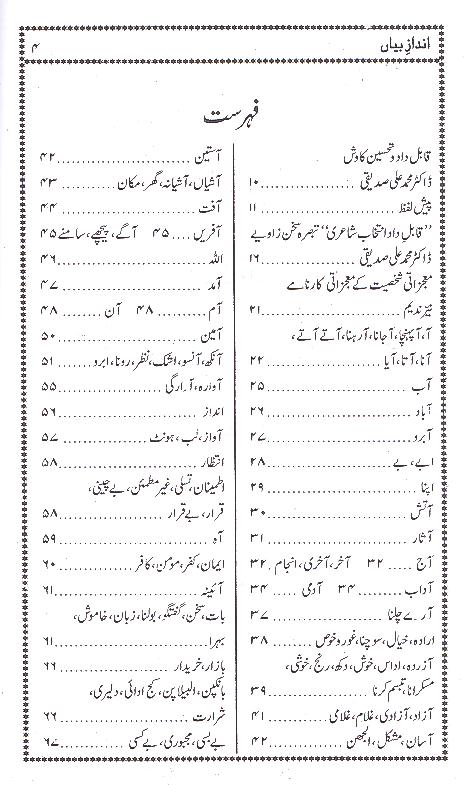 انداز بیاں ۴
فہرست
قابل داد و تحسین کاوش
ڈاکٹر محمد علی صدیقی ................ ۱۰
پیش لفظ ................ ۱۱
’’قابل داد انتخاب شاعری‘‘ تبصرہ سخن زاویے
ڈاکٹر محمد علی صدیقی ................ ۱۶
معجزاتی شخصیت کے معجزاتی کارنامے
نیئر ندیم ................ ۲۱
آ، آپہنچا، آجانا، آرہنا، آتے آتے،
آنا، آتا، آیا ................ ۲۲
آب ................ ۲۵
آباد ................ ۲۶
آبرو ................ ۲۷
ابے، بے ................ ۲۸
اپنا ................ ۲۹
آتش ................ ۳۰
آثار ................ ۳۱
آج ..... ۳۲ آخر، آخری، انجام .. ۳۲
آداب ........ ۳۴ آدمی .... ۳۴
آرے چلنا ................ ۳۷
ارادہ، خیال، سوچنا، غور و خوص .. ۳۸
آزردہ، اداس، خوش، دکھ، رنج، خوشی،
مسکرانا، تبسم کرنا ................ ۳۹
آزاد، آزادی، غلام، غلامی ..... ۴۱
آسان، مشکل، الجھن ........... ۴۲
آستین ................ ۴۲
آشیاں، آشیانہ، گھر، مکان ........ ۴۳
آفت ................ ۴۴
آفریں .... ۴۵ آگے، پیچھے، سامنے ۴۵
اللہ ................ ۴۶
آمد ................ ۴۷
آم ........ ۴۸ آن .... ۴۸
آمین ................ ۵۰
آنکھ، آنسو، اشک، نظر، رونا، ابرو .... ۵۱
آوارہ، آوارگی ................ ۵۵
انداز ................ ۵۶
آواز، لب، ہونٹ ............ ۵۷
انتظار ................ ۵۸
اطمینان، تسلی، غیر مطمئن، بے چینی،
قرار، بے قرار ................ ۵۸
آہ ................ ۵۹
ایمان، کفر، مومن، کافر ........ ۶۰
آئینہ ................ ۶۱
بات، سخن، گفتگو، بولنا، زبان، خاموش،
بہرا ................ ۶۱
بازار، خریدار ................ ۶۶
بانکپن، البیلا پن، کج ادائی، دلیری،
شرارت ................ ۶۶
بے بسی، مجبوری، بے کسی ........ ۶۷